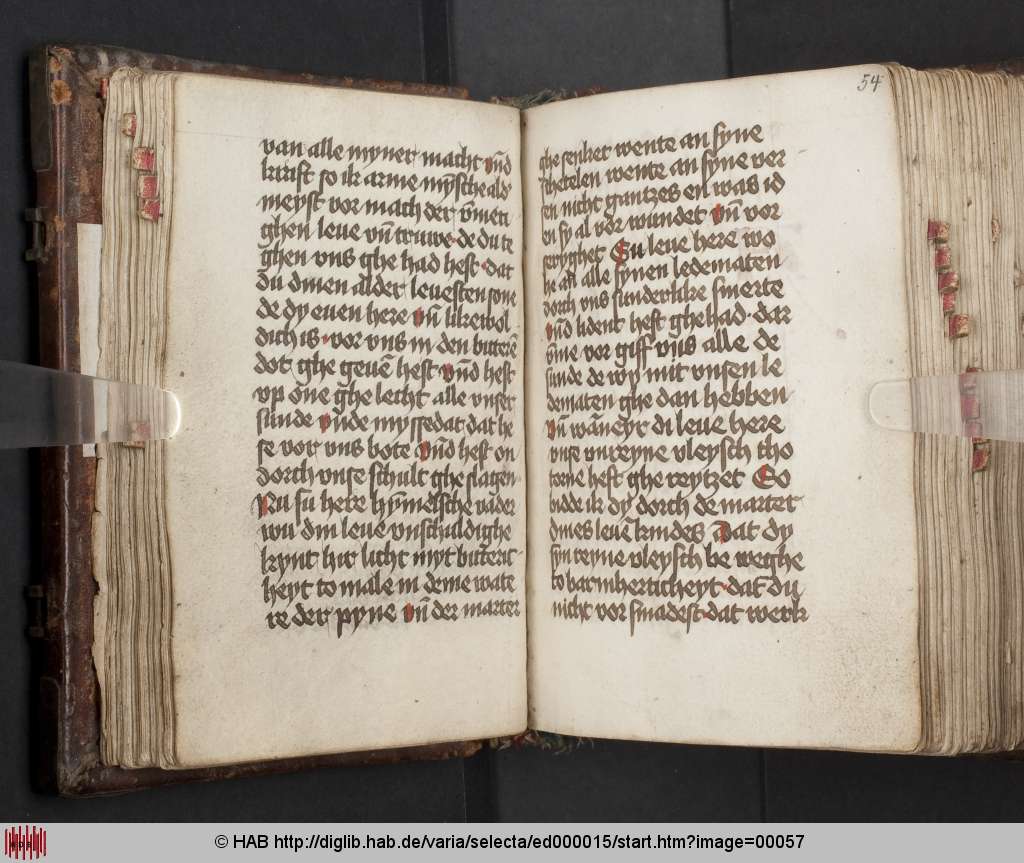 van alle myner macht vn̄d
krafft so ik arme mȳsche alds
meyst vor mach der v̄meti
ghen leue vn̄ truwe de du te
ghen vns ghe had hefst dat
du dinen alder leuesten sone
de dy euen here vn̄ likewol
dich is vor vns in den bitterē
dot ghe geuē hefst vn̄d hefst
vp one ghe lecht alle vnser
sunde vn̄de myssedat dat he
se vor vns bote vn̄d hefst on
dorch vnse schult ghe slagen
Nu sü here hȳmelsche vader
wu din leue vnschuldighe
kynt hir licht myt bitteric
heyt to male in deme wate
re der pyne vn̄ der marter
54
ghe senket wente an syne
schetelen wente an syne ver
sen nicht gantzes en was id
en sy al vor wundet vn̄ vor
seryghet Eu leue here wo
he an alle synen ledematen
dorch vns sunderlike smerte
vn̄d lident hefst ghe had dar
v̄me vor giff vns alle de
sunde de wy mit vnsen le
dematen ghe dan hebben
vn̄ wāneyr di leue here
vnse vnreyne vleysch tho
torne heft ghe reytzet So
bidde ik dy dorch de marter
dines leuē kindes Dat dy
syn reyne vleysch be weghe
to barmherticheyt dat du
nicht vor smadest dat werk
© HAB http://diglib.hab.de/varia/selecta/ed000015/start.htm?image=00057